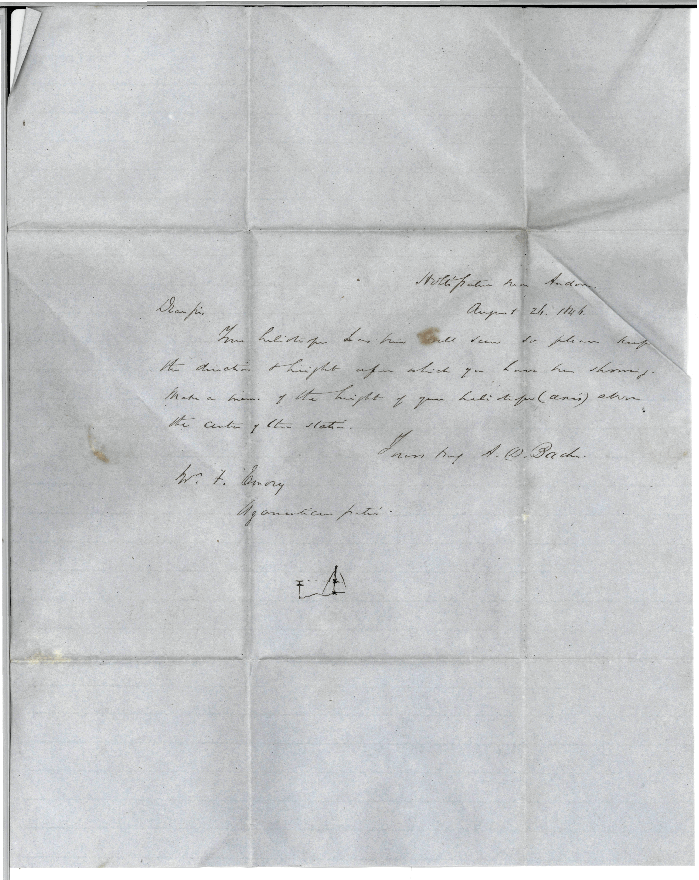 Holt station near Andover.
August 26. 1846.
Dear sir
Your heliotrope has been well seen so please keep
the direction & height upon which you have been showing.
Make a mem. of the height of your heliotrope (axis) above
the center of the station.
Yours truly A. D. Bache.
Wm. F. Emory
Agamenticus station.